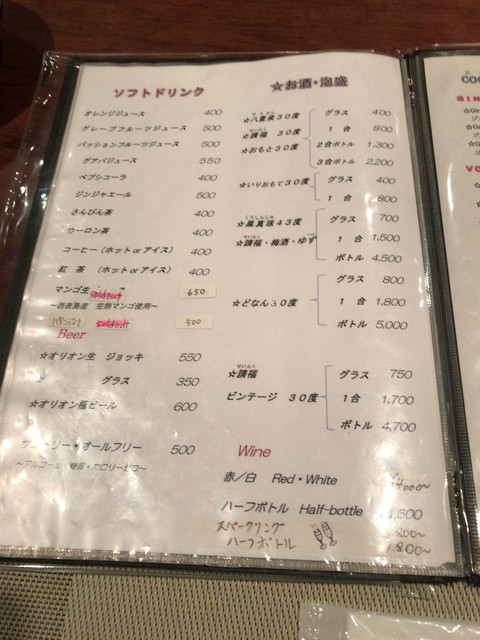 ソフトドリンク
オレンジジュース 400
グレープフルーツジュース 500
パッションフルーツジュース 500
グアバジュース 550
ペプシコーラ 400
ジンジャエール 500
さんぴん茶 400
ウーロン茶 400
コーヒー(ホット or アイス) 400
紅 茶 (ホット or アイス) 400
マンゴ生 sold out 650
~西表島産 完熟マンゴ使用~
sold out 500
Beer
☆オリオン生 ジョッキ 550
グラス 350
☆オリオン瓶ビール 600
オールフリー 500
~アルコール・糖質・カロリーゼロ~
☆お酒・泡盛
☆八重泉30度 グラス 400
☆請福 30度 1 合 800
☆おもと30度 2合ボトル 1,300
3合ボトル 2,200
☆いりおもて30度 グラス 400
1 合 800
☆黒真珠43度 グラス 700
☆請福・梅酒・ゆず 1 合 1,500
ボトル 4,500
グラス 800
☆どなん30度 1 合 1,800
ボトル 5,000
☆請福 グラス 750
ビンテージ 30度 1合 1,700
ボトル 4,700
Wine
赤/白 Red・White
ハーフボトル Half-bottle
スパークリング
ハーフボトル 1.800~